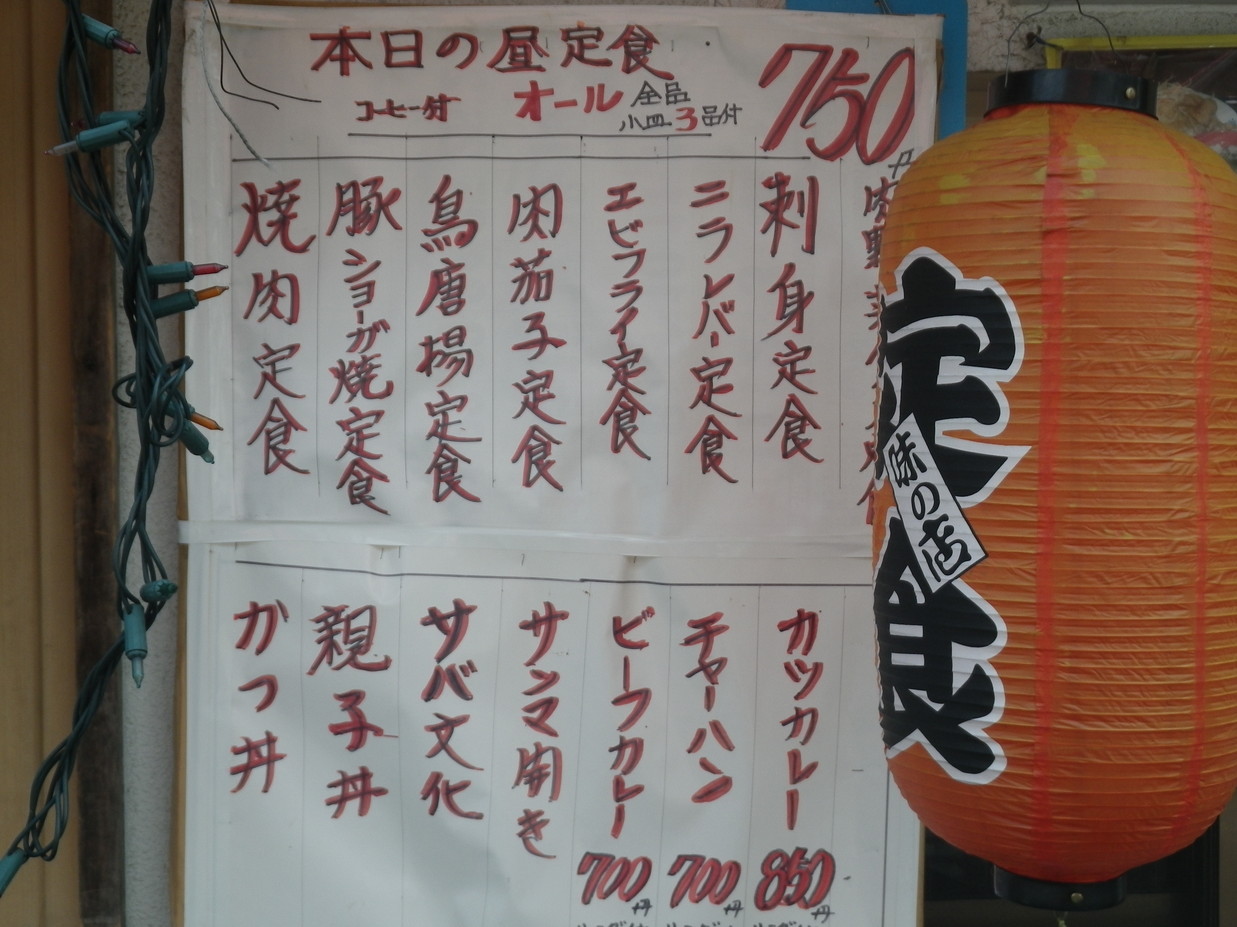 本日の昼定食
コーヒー付 オール 全品
小皿3品付
750
円
刺身定食
ニラレバー定食
エビフライ定食
肉茄子定食
鳥唐揚定食
豚ショーガ焼定食
焼肉定食
カツカレー
850
円
チャーハン
700
円
ビーフカレー
700
円
サンマ開き
サバ文化
親子丼
かつ丼
定食
味の店